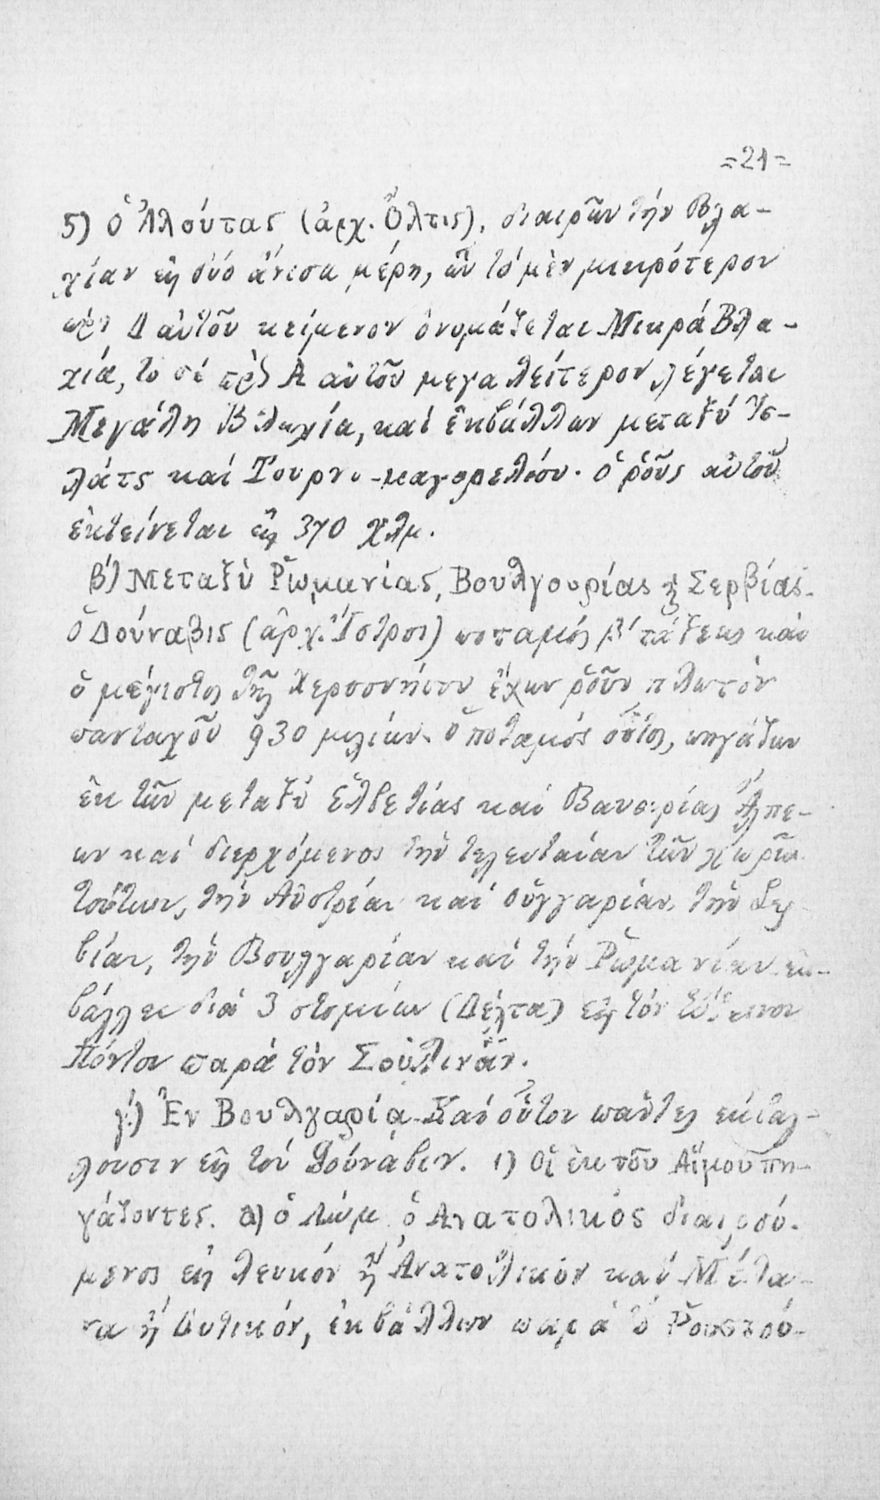 =21=
5) ὁ Ἀλούτας (ἀρχ. Ὄλτις), διαιρῶν τήν Βλα-
χίαν εἰς δύο ἄνισα μέρη, ὧν τό μέν μικρότερον
πρὸς Δ αὐτοῦ κείμενον ὀνομάζεται Μικρά Βλα-
χιά, τό δέ πρὸς Α αὐτοῦ μεγαλείτερον λέγεται
Μεγάλη Βλαχία, καί ἐκβάλλων μεταξύ Ἰσ-
λάτς καί Τουρνο-μαγορελέου. ὁ ῥοῦς αὐτοῦ
ἐκτείνεται εἰς 370 χλμ.
β') Μεταξὺ Ῥωμανίας, Βουλγουρίας ϗ Σερβίας.
ὁ Δούναβις (ἀρχ. Ἴστρος) ποταμός β' τάξεως καί
ὁ μέγιστος τῆς Χερσονήσου ἔχων ῥοῦν πλωτόν
πανταχοῦ 930 μιλίων. ὁ ποταμός οὗτος, πηγάζων
ἐκ τῶν μεταξύ Ἑλβετίας καί Βαυαρίας Ἄλπε-
ων καί διερχόμενος τήν τελευταίαν τῶν χωρῶν
τούτων, τήν Αὐστρίαν καί Οὑγγαρίαν, τήν Σερ-
βίαν, τήν Βουλγαρίαν καί τήν Ῥωμανίαν ἐκ-
βάλλει διά 3 στομίων (Δέλτα) εἰς τόν Εὔξεινον
Πόντον παρά τόν Σουλινᾶν.
γ') Ἐν Βουλγαρίᾳ. Καί οὗτοι πάντες εἰσβάλ-
λουσιν εἰς τόν Δούναβιν. 1) Οἱ ἐκ τοῦ Αἵμου πη-
γάζοντες. α) ὁ Λώμ ὁ Ἀνατολικός διαιρού-
μενος εἰς λευκόν ἤ Ἀνατολικόν καί Μέλα-
να ἤ Δυτικόν, ἐκβάλλων παρά τό Ῥουστσού-